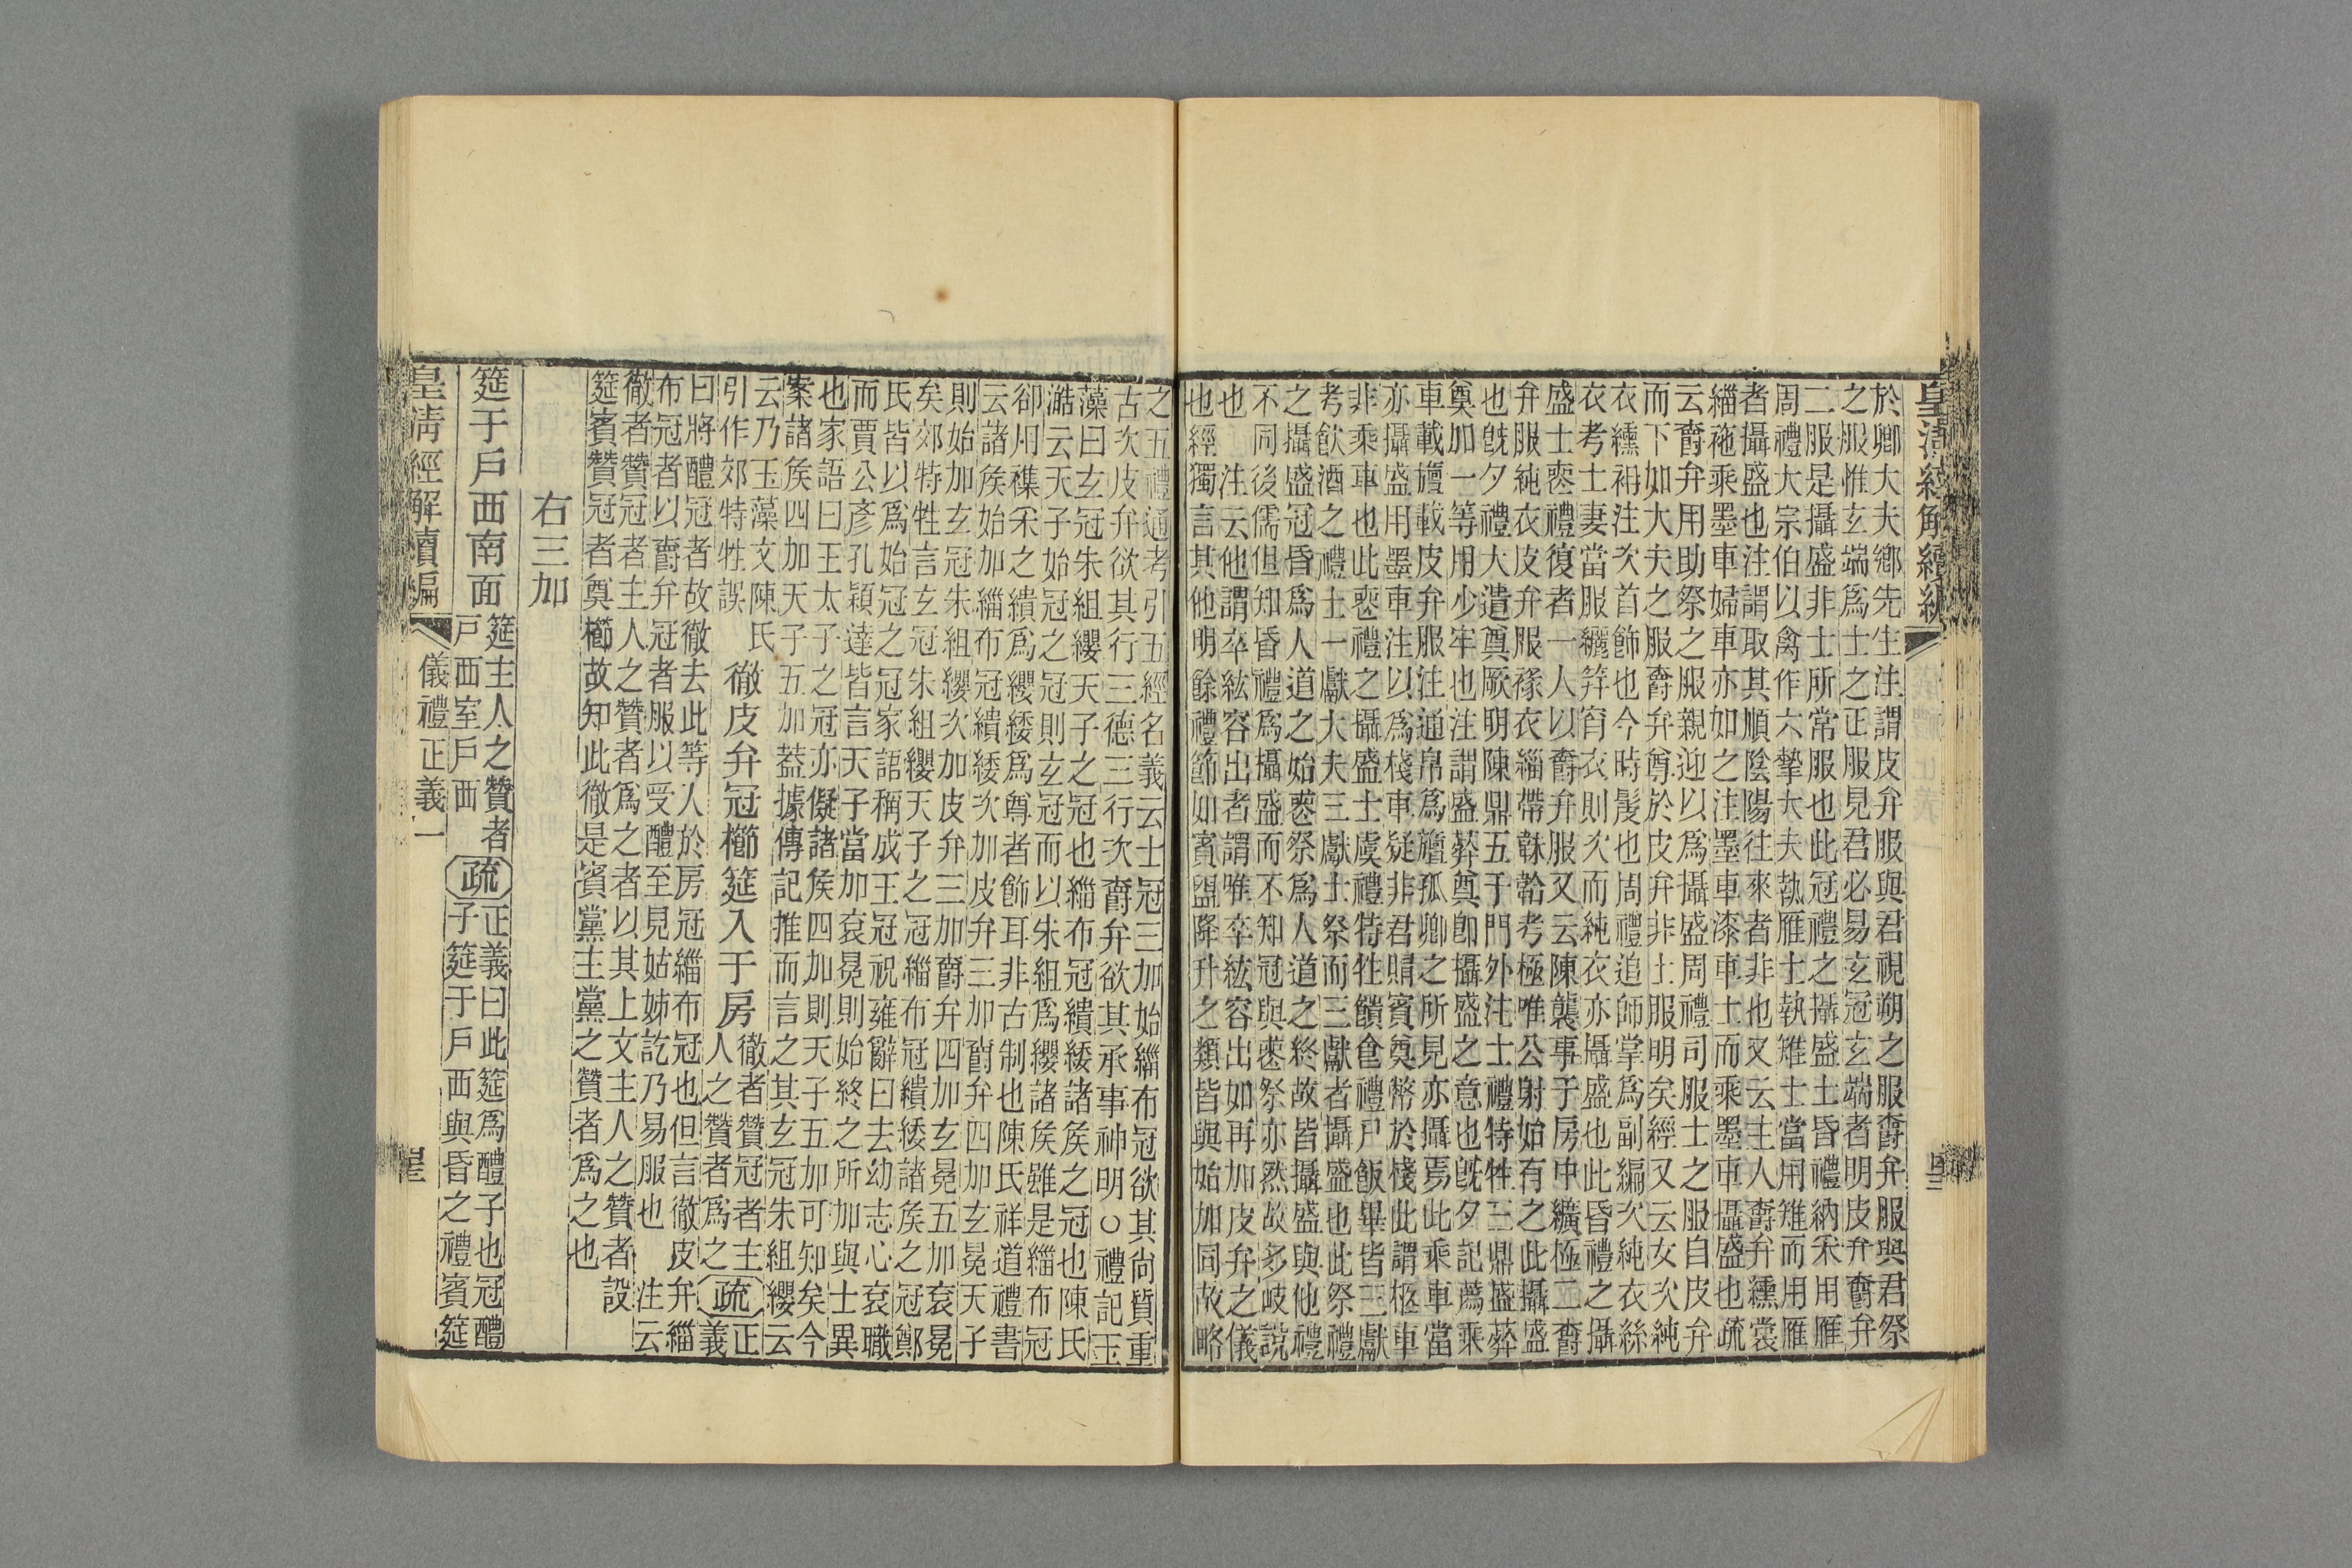 皇清經解續編
於卿大夫鄉先生注謂皮弁服與君視朔之服爵弁服與君祭
之服惟玄端爲士之正服見君必易玄冠玄端者明皮弁爵弁
二服是攝盛非士所常服也此冠禮之攝盛士昏禮納采用雁
周禮大宗伯以禽作六摯大夫執雁士執雉士當用雉而用雁
者攝盛也注謂取其順陰陽往來者非也又云主人爵弁纁裳
緇袘乘墨車婦車亦如之注墨車漆車士而乘墨車攝盛也疏
云爵弁用助祭之服親迎以爲攝盛周禮司服士之服自皮弁
而下如大夫之服爵弁尊於皮弁非士服明矣經又云女次純
衣纁袡注次首飾也今時髲也周禮追師掌爲副編次純衣絲
衣考士妻當服纚笄宵衣則次而純衣亦攝盛也此昏禮之攝
盛士喪禮復者一人以爵弁服又云陳襲事于房中纊極二爵
弁服純衣皮弁服褖衣緇帶韎韐考極唯公射始有之此攝盛
也旣夕禮大遣奠厥明陳鼎五于門外注士禮特牲三鼎盛葬
奠加一等用少牢也注謂盛葬奠卽攝盛之意也旣夕記薦乘
車載旜載皮弁服注通帛爲旜孤卿之所見亦攝焉此乘車當
亦攝盛用墨車注以爲棧車疑非君賵賓奠幣於棧此謂柩車
非乘車也此喪禮之攝盛士虞禮特牲饋食禮尸飯畢皆三獻
考飲酒之禮士一獻大夫三獻士祭而三獻者攝盛也此祭禮
之攝盛冠昏爲人道之始喪祭爲人道之終故皆攝盛與他禮
不同後儒但知昏禮爲攝盛而不知冠與喪祭亦然故多岐說
也　注云他謂卒紘容出者謂唯卒紘容出如再加皮弁之儀
也經獨言其他明餘禮節如賓盥降升之類皆與始加同故略
之五禮通考引五經名義云士冠三加始緇布冠欲其尚質重
古次皮弁欲其行三德三行次爵弁欲其承事神明○禮記玉
藻曰玄冠朱組纓天子之冠也緇布冠繢緌諸矦之冠也陳氏
澔云天子始冠之冠則玄冠而以朱組爲纓諸矦雖是緇布冠
卻用襍采之繢爲纓緌爲尊者飾耳非古制也陳氏祥道禮書
云諸矦始加緇布冠繢緌次加皮弁三加爵弁四加玄冕天子
則始加玄冠朱組纓次加皮弁三加爵弁四加玄冕五加袞冕
矣郊特牲言玄冠朱組纓天子之冠緇布冠繢緌諸矦之冠鄭
氏皆以爲始冠之冠家語稱成王冠祝雍辭曰去幼志心袞職
而賈公彥孔穎達皆言天子當加袞冕則始終之所加與士異
也家語曰王太子之冠亦儗諸矦四加則天子五加可知矣今
案諸矦四加天子五加蓋據傳記推而言之其玄冠朱組纓云
云乃玉藻文陳氏
引作郊特牲誤
徹皮弁冠櫛筵入于房
徹者贊冠者主
人之贊者爲之
疏
正
義
曰將醴冠者故徹去此等人於房冠緇布冠也但言徹皮弁緇
布冠者以爵弁冠者服以受醴至見姑姊訖乃易服也　注云
徹者贊冠者主人之贊者爲之者以其上文主人之贊者　設
筵賓贊冠者奠櫛故知此徹是賓黨主黨之贊者爲之也
右三加
筵于戶西南面
筵主人之贊者
戶西室戶西
疏
正義曰此筵爲醴子也冠醴
子筵于戶西與昏之禮賓筵
皇清經解續編
儀禮正義一